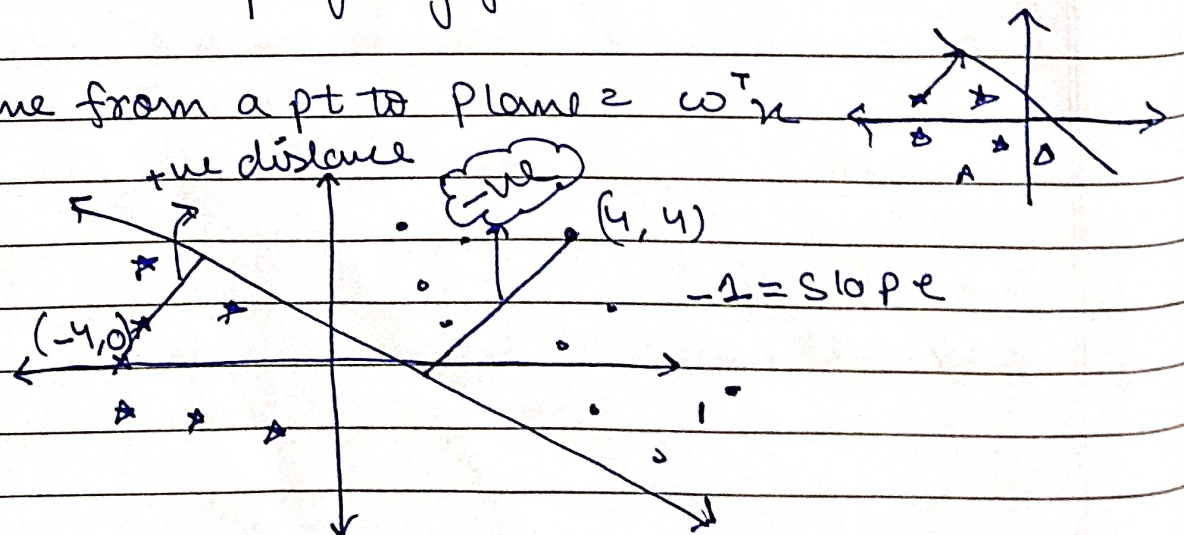 me from a pt to Plane = ω^T x
+ve distance
-ve
(4, 4)
-1 = Slope
(-4,0)